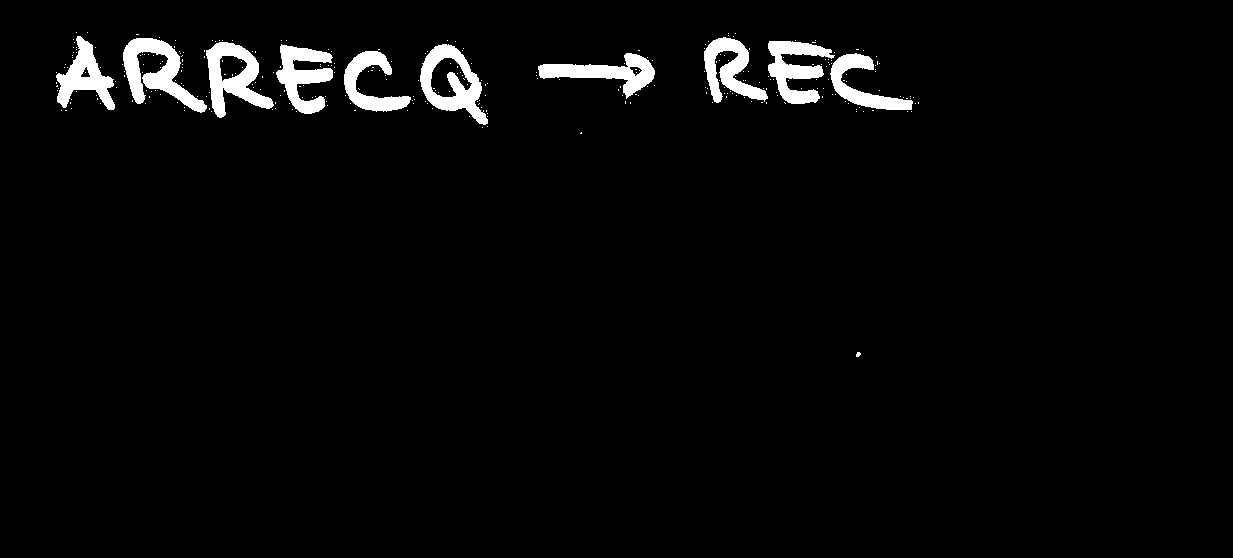 ARRECQ → REC